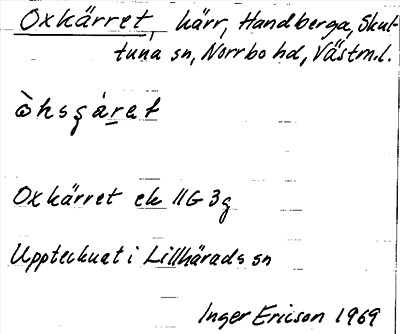 Oxkärret, kärr, Handberga, Skul-
tuna sn, Norrbo hd, Västm.l.
ὼhsgáret
Oxkärret ek 11G 3g
Upptecknat i Lillhärads sn
Inger Ericson 1969